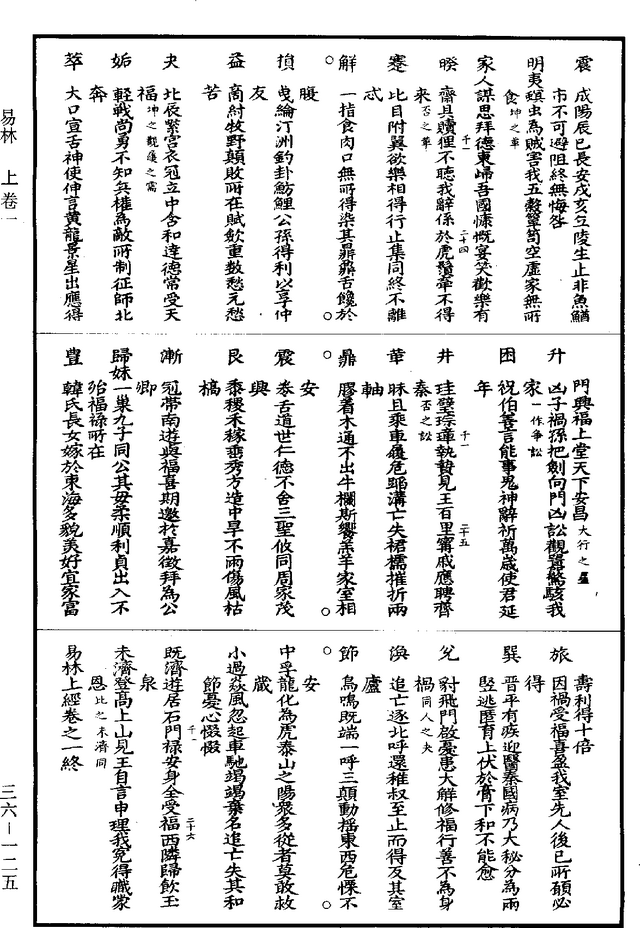 震　成陽辰已長安戌亥丘陵生止非魚鰌
市不可避阻終無悔咎
明夷螟虫為賊害我五穀簞笥空虛家無所
食 坤之革
家人謀思拜德東歸吾國慷慨宴笑歡樂有
千一 二十四
睽　齎貝贖狸不聽我辭係於虎鬚牽不得
来 否之革
蹇　比目附翼欲樂相得行止集同終不離
忒
解　一指食肉口無所得染其鼎鼐舌饞於
○　腹
損　曳綸汀洲釣卦魴鯉公孫得利以享仲
友
益　商紂牧野顛敗所在賦歛重數愁元愁
苦
夬　北辰紫宮衣冠立中含和達德常受天
福 坤之觀 之需
姤　輕戰尚勇不知兵權為敵所制征師北
奔
萃　大口宣舌神使伸言黄龍景星出應得
門興福上堂天下安昌
升　凶子禍孫把劍向門凶訟觀讙驚駭我
家 一作爭訟
困　祝伯善言能事鬼神辭祈萬歲使君延
年
千一 二十五
井　珪璧琮璋執贄見王百里甯戚應聘齊
秦 否之訟
革　昧且乘車履危蹈溝亡失裙襦摧折兩
軸
鼎　膠着木通不出牛欄斯饗羔羊家室相
○　安 ○
震　泰舌道世仁德不舍三聖攸同周家茂
興
艮　黍稷禾稼垂秀方造中旱不雨傷風枯
槁
漸　冠帶南遊與福喜期邀於嘉徵拜為公
卿
歸妹一巢九子同公其母柔順利貞出入不
殆福祿所在
豐　韓氏長女嫁於東海多貌美好宜家富
壽利得十倍
旅　因禍受福喜盈我室先人後己所願必
得
巽　晉平有疾迎醫秦國病乃大秘分為兩
竪逃匿肓上伏於膏下和不能愈
兌　豺飛門啟憂患大解修福行善不為身
禍 同人之夬
渙　追亡逐北呼還稚叔至止而得反其室
廬
節　鳥鳴既端一呼三顛動搖東西危慄不
○　安 ○
中孚龍化為虎泰山之陽衆多從者莫敢救
蔵
小過焱風忽起車馳竭竭棄名追亡失其和
節憂心惙惙
千一 二十六
既濟遊居石門祿安身全受福西隣歸飲玉
泉
未濟登高上山見王自言申理我寃得職蒙
恩 比之未濟同
易林上經卷之一終
易林　上卷一
三六－一二五